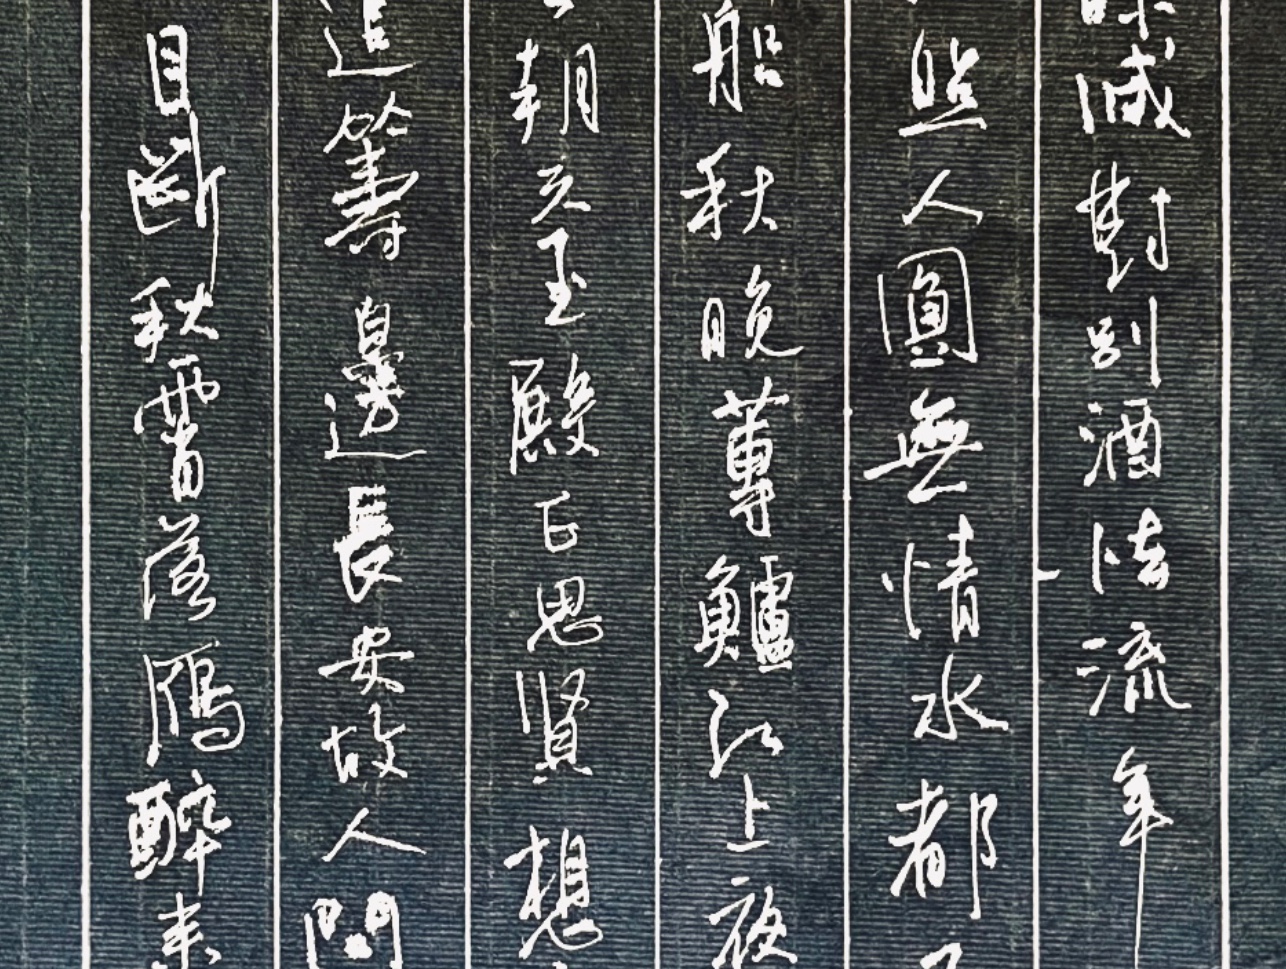 減對別酒怯流年
照人圓無情水都
船秋晚蓴鱸江上夜
朝天玉殿正思賢想
遣籌邊長安故人問
目斷秋霄落鴈醉來